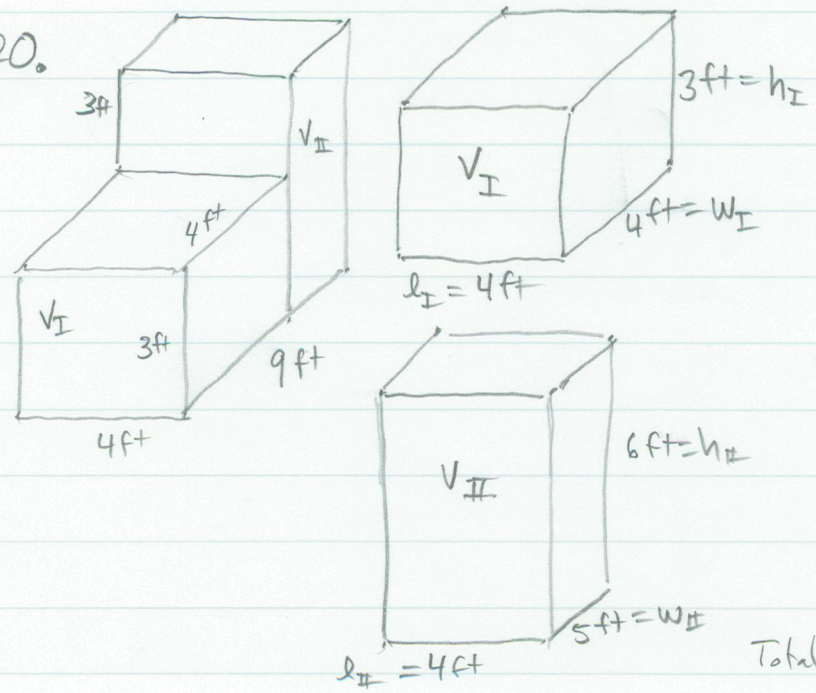 20.
3ft
V_II
4ft
V_I
3ft
9ft
4ft
V_I
3ft = h_I
4ft = w_I
l_I = 4ft
V_II
6ft = h_II
5ft = w_II
l_II = 4ft
Total